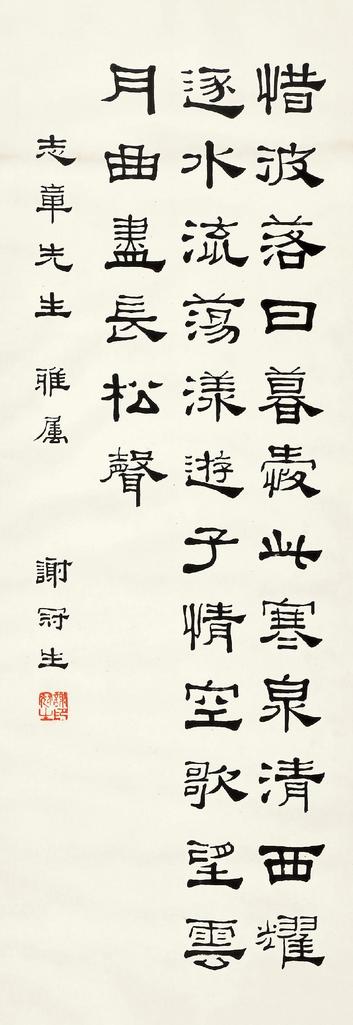 惜波落日暮愛此寒泉清西耀
逐水流蕩漾遊子情空歌望雲
月曲盡長松聲
志章先生 雅属 謝冠生